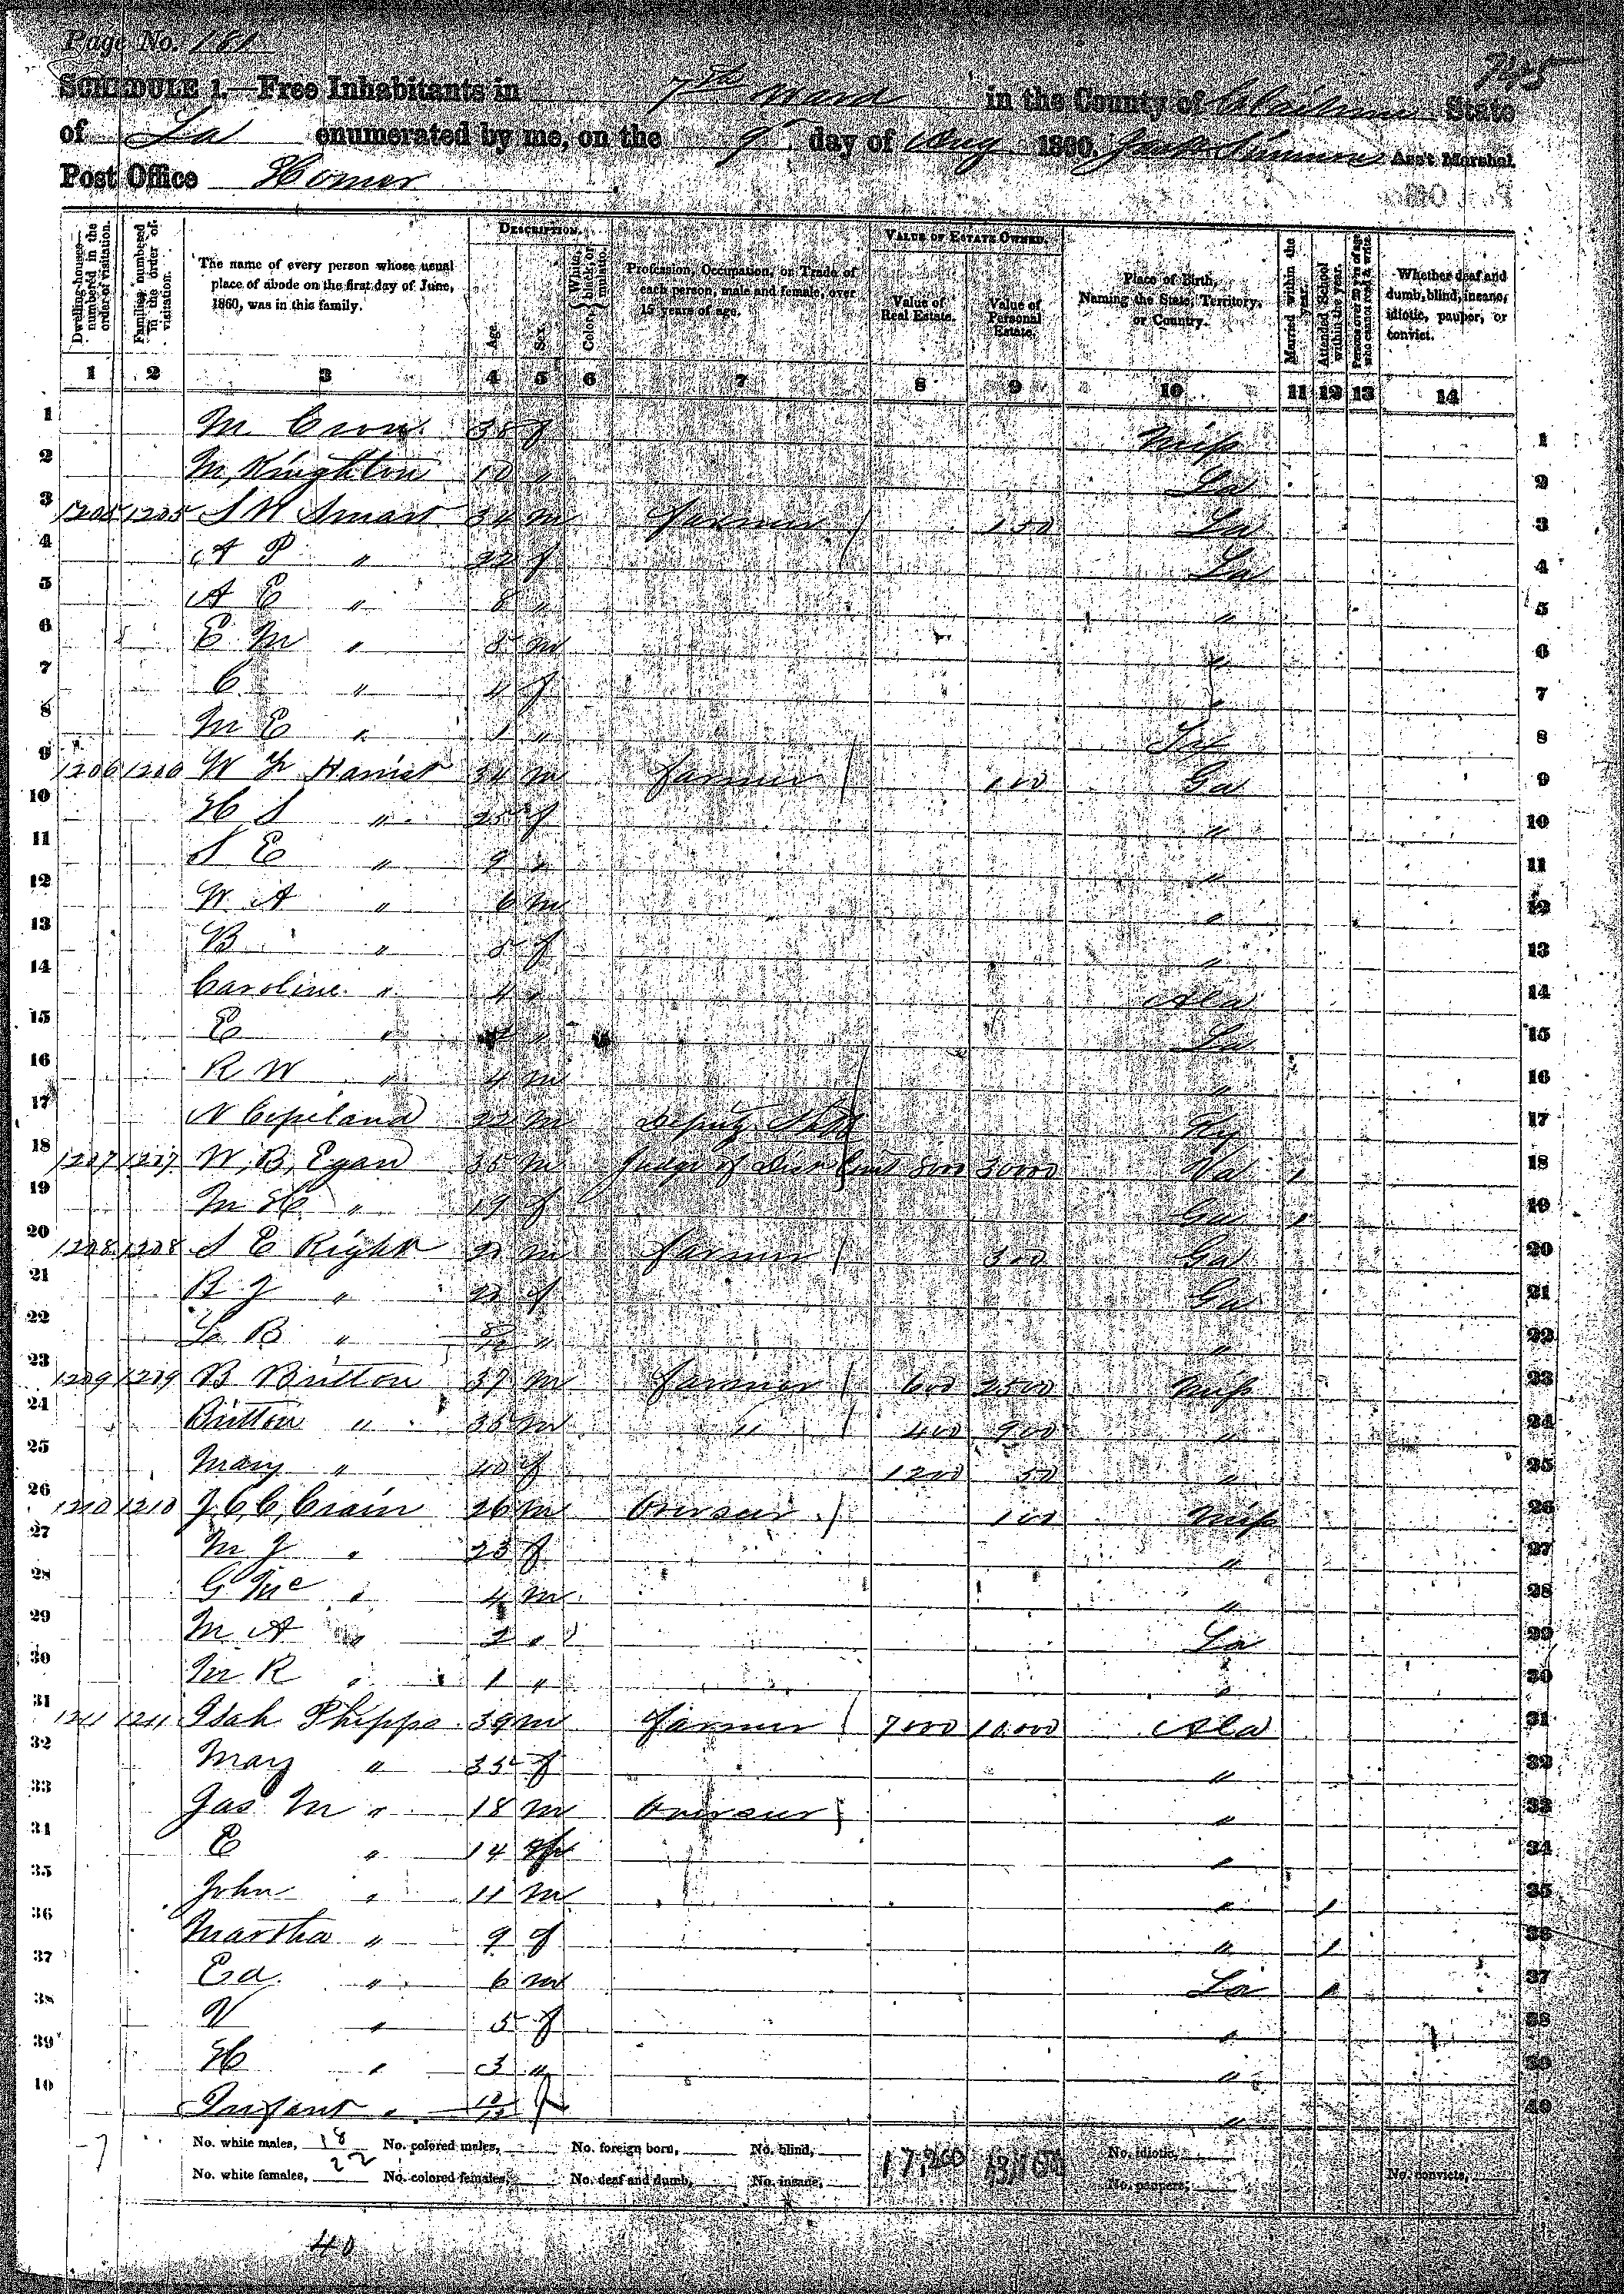 Page No. 181
745
SCHEDULE 1.—Free Inhabitants in 7th Ward in the County of Claiborne State
of La enumerated by me, on the 9 day of Aug 1860. Ass't Marshal.
Post Office Homer
Dwelling-houses—numbered in the order of visitation.
Families numbered in the order of visitation.
The name of every person whose usual place of abode on the first day of June, 1860, was in this family.
DESCRIPTION.
Age.
Sex.
Color, { White, black, or mulatto.
Profession, Occupation, or Trade of each person, male and female, over 15 years of age.
VALUE OF ESTATE OWNED.
Value of Real Estate.
Value of Personal Estate.
Place of Birth, Naming the State, Territory, or Country.
Married within the year.
Attended School within the year.
Persons over 20 y'rs of age who cannot read & write.
Whether deaf and dumb, blind, insane, idiotic, pauper, or convict.
1 2 3 4 5 6 7 8 9 10 11 12 13 14
1 M 38 f Miss 1
2 M, Kinghton 10 " La 2
3 1205 1205 S W Smart 34 m farmer / 150 La 3
4 A P " 22 f La 4
5 A E " 8 " " 5
6 E M " 5 m " 6
7 C " 4 f " 7
8 M E " 1 " 8
9 1206 1206 W 34 m farmer / 100 Ga 9
10 H S " 25 f " 10
11 S E " 9 " " 11
12 W A " 6 m " 12
13 B " 5 f " 13
14 Caroline " 4 " Ala 14
15 E " " La 15
16 R W " 4 m " 16
17 N Copeland 22 m Deputy Ky 17
18 1207 1207 W, B, Egan 35 m Judge of 8000 30000 Va / 18
19 M H " 19 f Ga / 19
20 1208 1208 S E Right 22 m farmer / 300 Ga 20
21 R J " 22 f Ga 21
22 L B " " " 22
23 1209 1209 B Britton 37 m farmer / 600 2500 Miss 23
24 Britton " 35 m " / 400 900 " 24
25 Mary " 40 f 1200 50 " 25
26 1210 1210 J, C, C, Crain 26 m Overseer / 100 Miss 26
27 M J " 23 f " 27
28 G Mc " 4 m " 28
29 M A " 2 " La 29
30 M R " 1 " " 30
31 1211 1211 Isah Phipps 39 m farmer / 7000 10,000 Ala 31
32 Mary " 35 f " 32
33 Jas M " 18 m Overseer / " 33
34 E " 14 " 34
35 John " 11 m " / 35
36 Martha " 9 f " / 36
37 Ed " 6 m La / 37
38 V " 5 f " 38
39 H " 3 " " 39
40 Infant " f " 40
No. white males, 18 No. colored males, No. foreign born, No. blind, 17,200 No. idiotic,
No. white females, 22 No. colored females, No. deaf and dumb, No. insane, No. paupers, No. convicts,
40